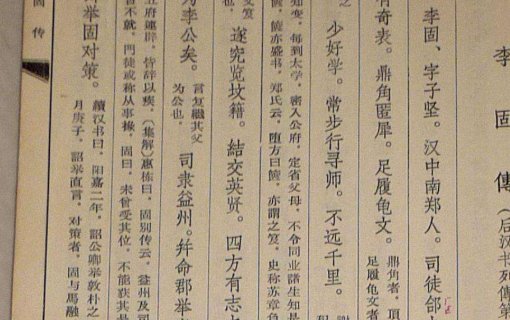 李 固 傳(后汉书列傳第
李固、字子堅。汉中南郑人。司徒郃
有奇表。鼎角匿犀。足履龟文。
鼎角者，頂
足履龟文者
少好学。常步行寻师。不远千里。
知变，每到太学，密入公府，定省父母，不令同业諸生知是
饋，饋亦盛书，郑氏云，堕方曰饋，亦謂之笈，史称苏章負
遂究览坟籍。結交英贤。四方有志
为李公矣。
言复继其父
为公也，
司隶益州。幷命郡举
五府連辟，皆辞以疾，〔集解〕惠栋曰，固别传云，益州及司
皆不就，門徒或称从事掾，固曰，未曾受其位，不能获其
举固对策。
續汉书曰，阳嘉二年，詔公卿举敦朴之
月庚子，詔举直言，对策者，固与馬融
固 传